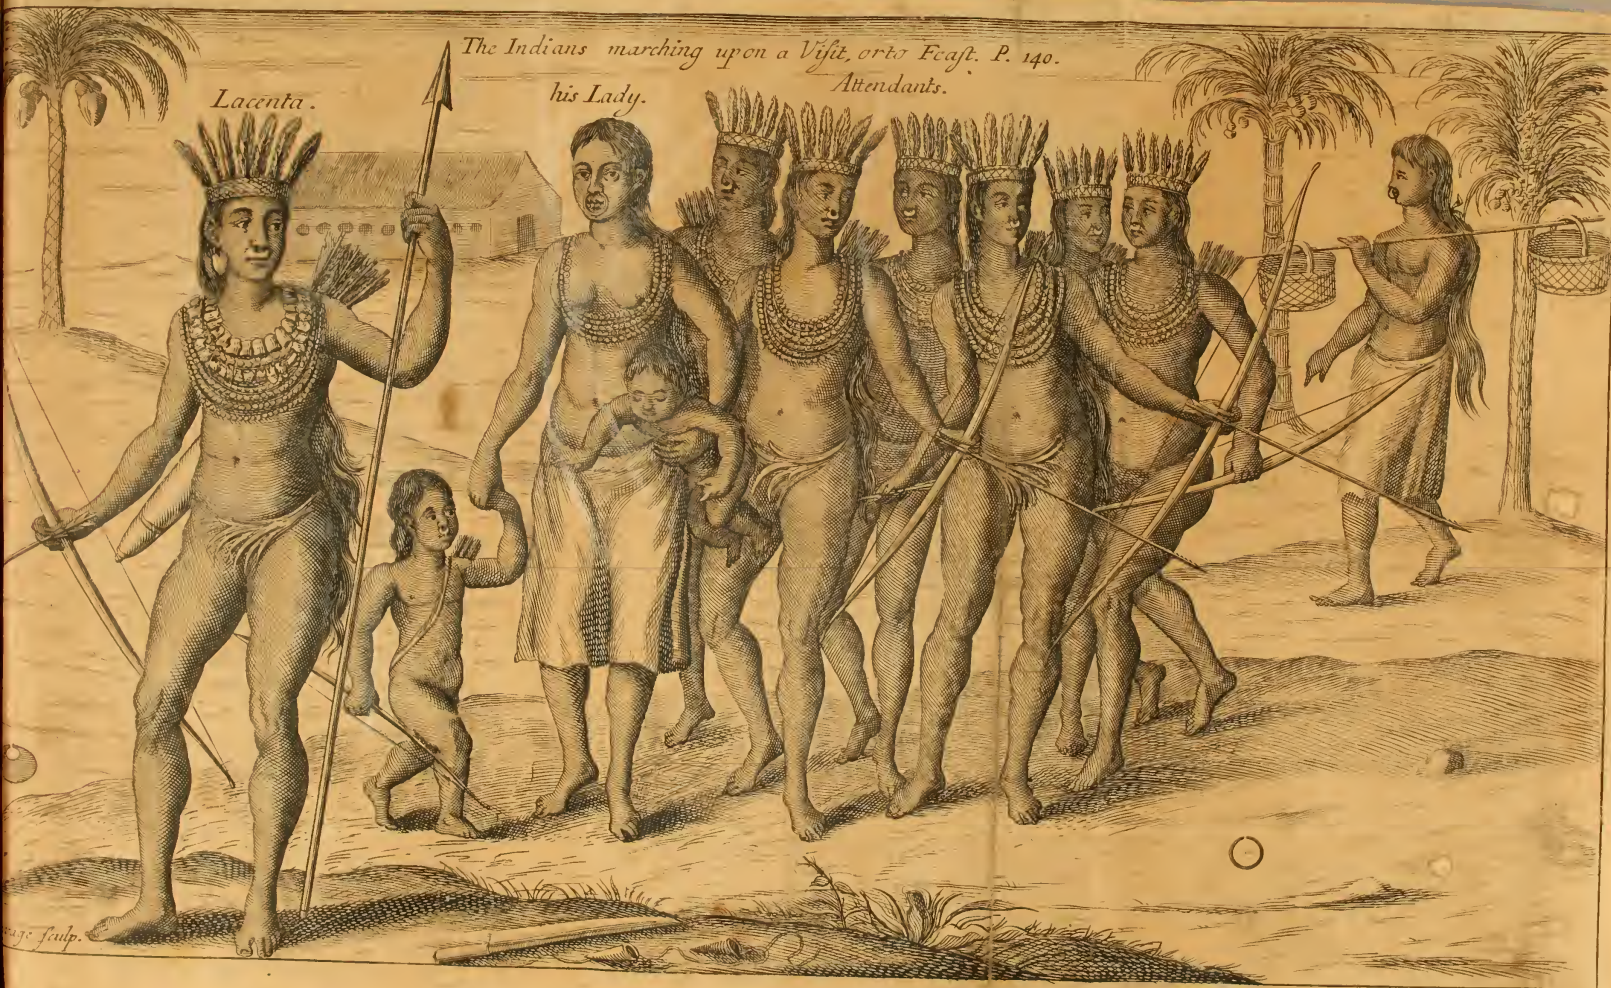 The Indians marching upon a Visit, or to Feast. P. 140.
Lacenta.
his Lady.
Attendants.
sculp.